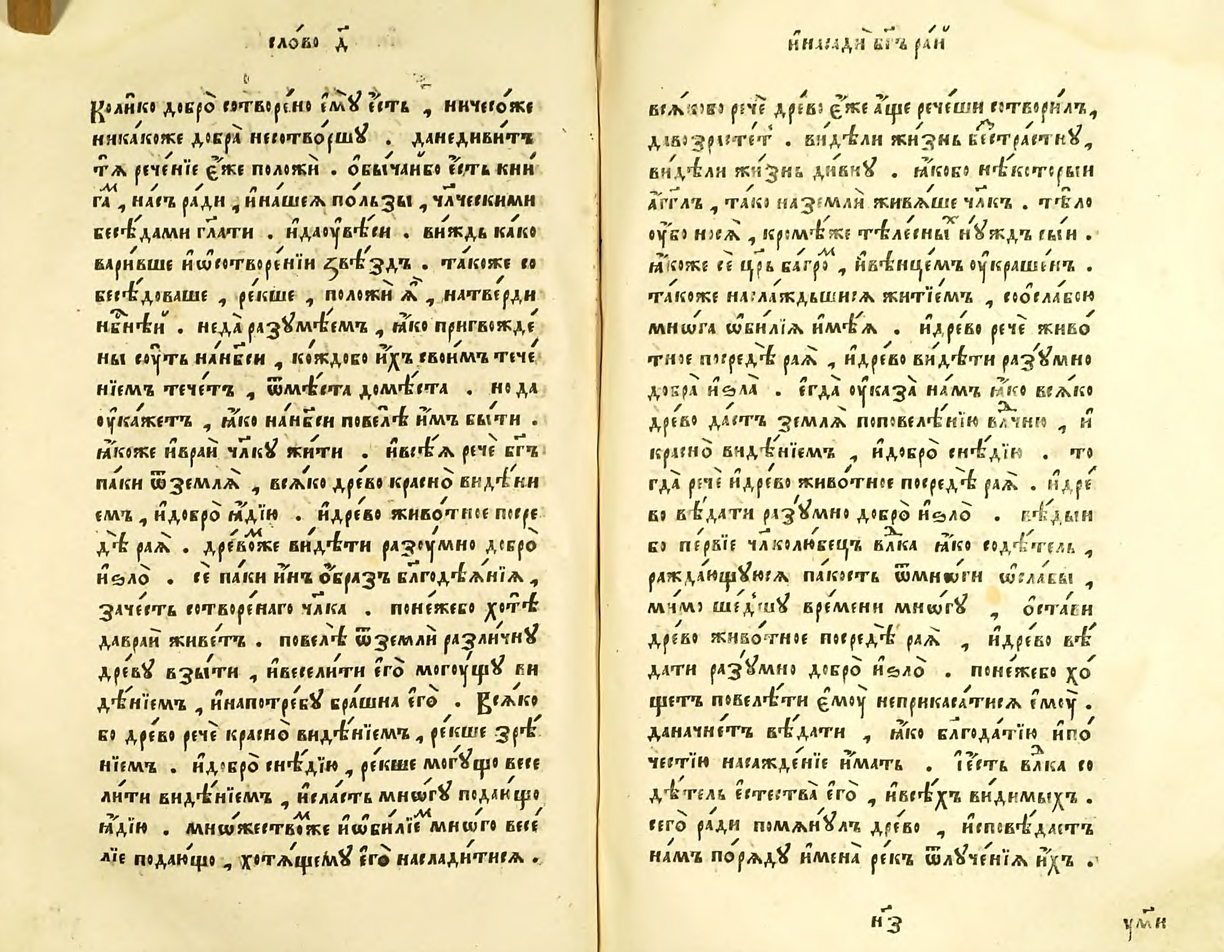 сло́во д҃
Коли́ко добро̀ сотворе́но є҆мꙋ̀ є҆́сть , ничесо́же
никакоже добра̀ несотво́ршꙋ . данедиви́тъ
тѧ рече́нїе є҆́же положѝ . ѡ҆бы́чаибо є҆́сть кни
гаⷨ , на́съ ради , и҆на́шеѧ по́льзы , чл҃ческими
бесѣ́дами гл҃ати . и҆даоувѣ́си . ви́ждь ка́ко
вари́вше и҆ѡ҆сотворе́нїи ꙃвѣ́здъ . та́коже со
бесѣ́доваше , ре́кше , положѝ ѧ҆̀ , натве́рди
нб҃нѣи . неда̀ разꙋмѣ́емъ , ꙗ҆́ко пригвожде́
ны соу́ть нанб҃си , ко́ждобо и҆́хъ свои́мъ тече́
нїемъ тече́тъ , ѿмѣ́ста домѣ́ста . но да
оука́жетъ , ꙗ҆́ко нанб҃си повелѣ̀ и҆̀мъ бы́ти .
ꙗ҆́коже и҆вра́й чл҃кꙋ жи́ти . и҆всѐѧ речѐ бг҃ъ
па́ки ѿземлѧ̀ , всѧ́ко дре́во красно̀ видѣ́ни
емъ , и҆добро̀ ꙗ҆́дїю . и҆дре́во живо́тное посре
дѣ̀ раѧ̀ . дре́воⷨже видѣ́ти разоу́мно добро̀
и҆ѕло̀ . сѐ па́ки и҆́нъ ѡ҆́бразъ бл҃годѣѧ́нїѧ ,
заче́сть сотворе́наго чл҃ка . поне́жебо хотѣ̀
давра́й живе́тъ . повелѣ̀ ѿземлѝ разли́чнꙋ
дре́вꙋ взы́ти , и҆весели́ти є҆го̀ могоу́щꙋ ви
дѣ́нїемъ , и҆напотре́бꙋ бра́шна є҆го̀ . Всѧ́ко
бо дре́во речѐ красно̀ видѣ́нїемъ , ре́кше зрѣ́
нїемъ . и҆добро̀ снѣ́дїю , ре́кше могꙋ́що весе
ли́ти видѣ́нїемъ , и҆сла́сть мно́гꙋ подаю́що
ꙗ҆́дїю . мнѡ́жествоⷨже и҆ѡ҆би́лїеⷨ мно́го весе́
лїе подаю́що , хотѧ́щемꙋ є҆го̀ наслади́тисѧ .
и҆насадѝ бг҃ъ ра́й
всѧ́кобо речѐ дре́во є҆́же а҆́ще рече́ши сотвори́лъ ,
давозрасте́т . ви́дѣли жи́знь беⷥстра́стнꙋ ,
ви́дѣли жи́знь ди́внꙋ . ꙗ҆́кобо нѣ́которыи
а҆́гг҃лъ , та́ко наземлѝ живѧ́ше чл҃къ . тѣ́ло
оу҆́бо носѧ̀ , кромѣ́же тѣле́сныⷯ ну́ждъ сыи .
ꙗ҆́коже сѐ цр҃ь багроⷨ , и҆вѣнце́мъ оукраше́нъ .
та́коже наслажда́шисѧ житїе́мъ , сосла́бою
мнѡ́га ѡ҆би́лїѧ и҆мѣ́ѧ . и҆дре́во речѐ живо́
тное посредѣ̀ раѧ̀ , и҆дре́во видѣ́ти разꙋ́мно
добра̀ и҆ѕла̀ . є҆гда̀ оуказа̀ на́мъ ꙗ҆́ко всѧ́ко
дре́во да́стъ землѧ̀ поповелѣ́нїю влⷣчню , и҆
красно̀ видѣ́нїемъ , и҆добро̀ снѣ́дїю . то
гда̀ речѐ и҆дре́во живо́тное посредѣ̀ раѧ̀ . и҆дре́
во вѣ́дати разꙋ́мно добро̀ и҆ѕло̀ . вѣ́дыи
бо пе́рвїе чл҃колю́бецъ влⷣка ꙗ҆́ко содѣ́тель ,
ражда́ющꙋюсѧ па́кость ѿмнѡ́ги ѡ҆сла́бы ,
ми́мо ше́дшꙋ вре́мени мнѡ́гꙋ , ѡ҆ста́ви
дре́во живо́тное посредѣ̀ раѧ̀ , и҆дре́во вѣ́
дати разꙋ́мно добро̀ и҆ѕло̀ . поне́жебо хо́
щетъ повелѣ́ти є҆моу̀ неприкаса́тисѧ є҆моу̀ .
дана́чнетъ вѣ́дати , ꙗ҆́ко бл҃года́тїю и҆по
че́стїю насажде́нїе и҆́мать . і҆е́сть влⷣка со
дѣ́тель є҆стества̀ є҆го̀ , и҆всѣ́хъ ви́димыхъ .
сего̀ ра́ди помѧнꙋ́лъ дре́во , и҆сповѣ́дастъ
на́мъ порѧ́дꙋ и҆мена̀ ре́къ ѿлуче́нїѧ и҆́хъ .
н҃з
ꙋмⷨи